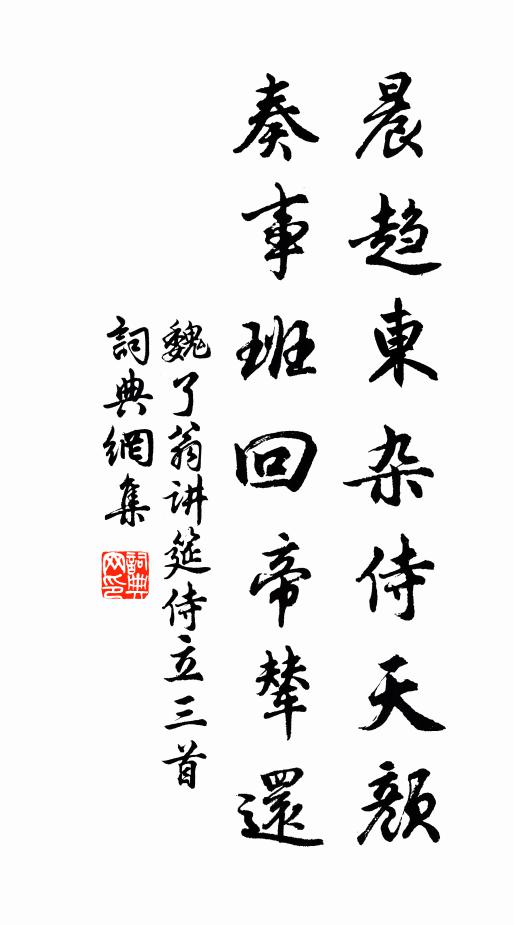 晨趨東杂侍天顏
奏事班回帝輦還
魏了翁讲筵侍立三首
詞典網集
詞典网印